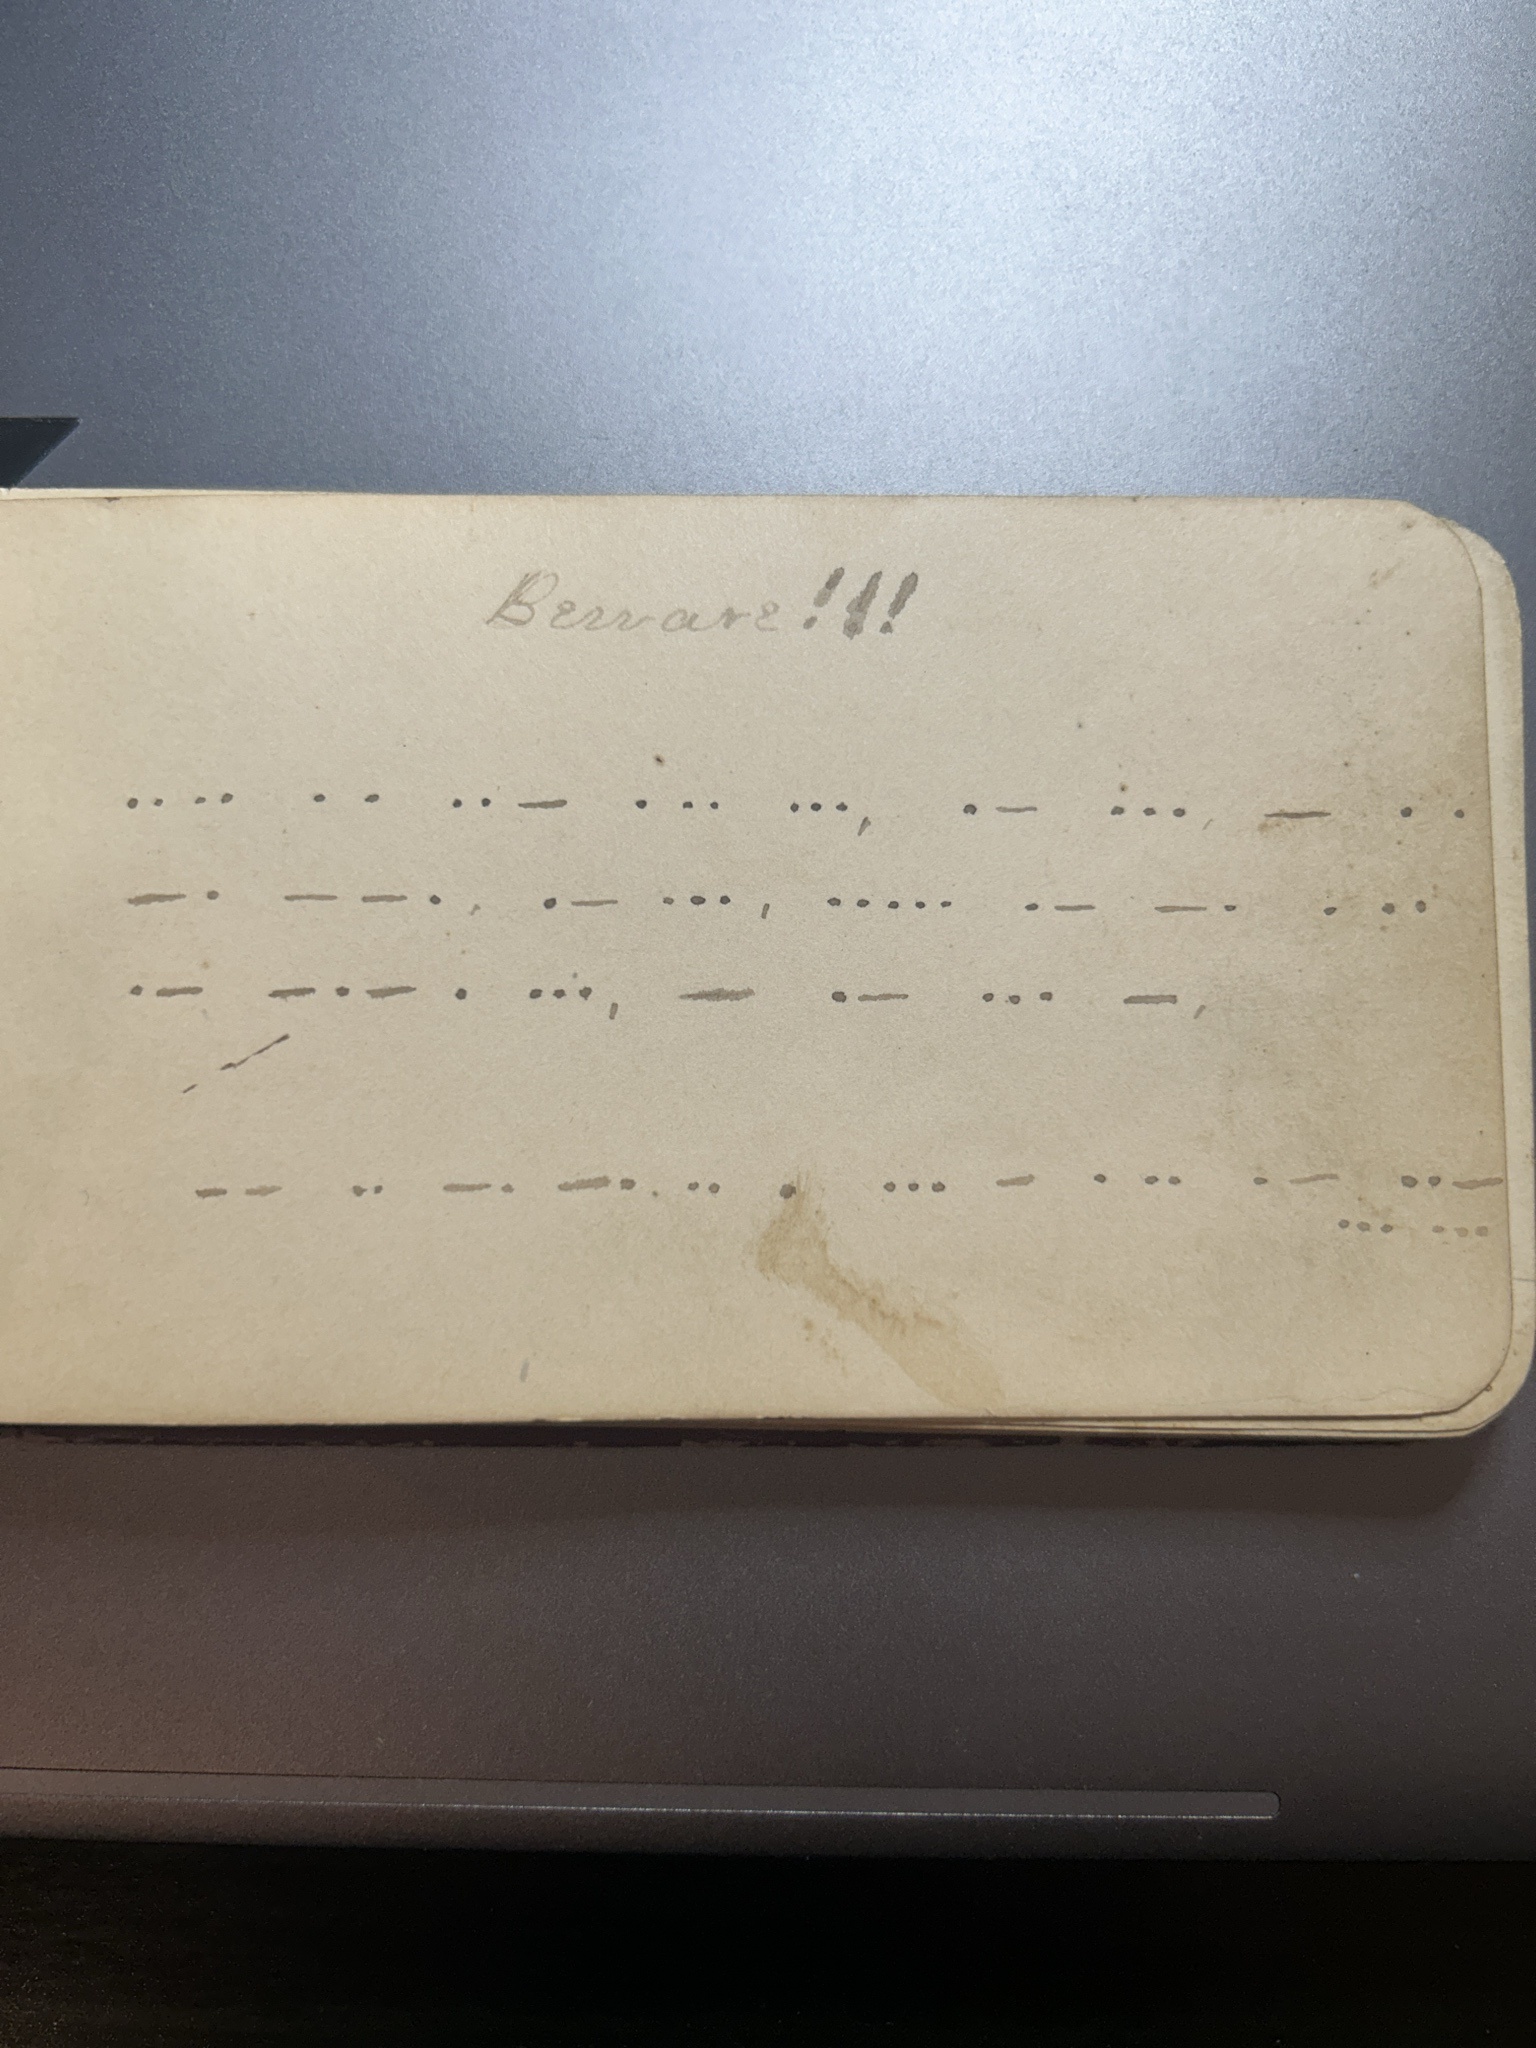 Beware!!!
.... . . ..— . .. ...,   .— ..., — . .
—. — —., .— ..., ..... .— —. . ..
.— —.— . ..., — .— ... —,
— — .. —. —. .. . ... — . .. .— ..—
... ...